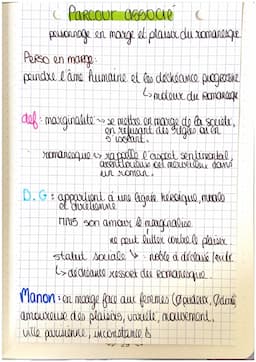 Parcour associé
personnage en marge et plaisir du romanesque
Perso en marge:
peindre l'âme humaine et les déchéance progressive
↳ moteur du romanesque
def: marginalité → se mettre en marge de la société,
en refusant des règles ou en
s'isolant.
romanesque → rappelle l'aspect sentimental,
aventureux et merveilleux dans
un roman.
D.G: appartient à une lignée héroïque, morale
et chrétienne
MAIS son amour le marginalise
ne peut lutter contre le plaisir
statut sociale ↳ noble à déchue
↳ déchéance ressort du romanesque.
Manon: en marge face aux femmes
amoureuse des plaisirs, variété, mouvement,
ville parisienne, inconstance